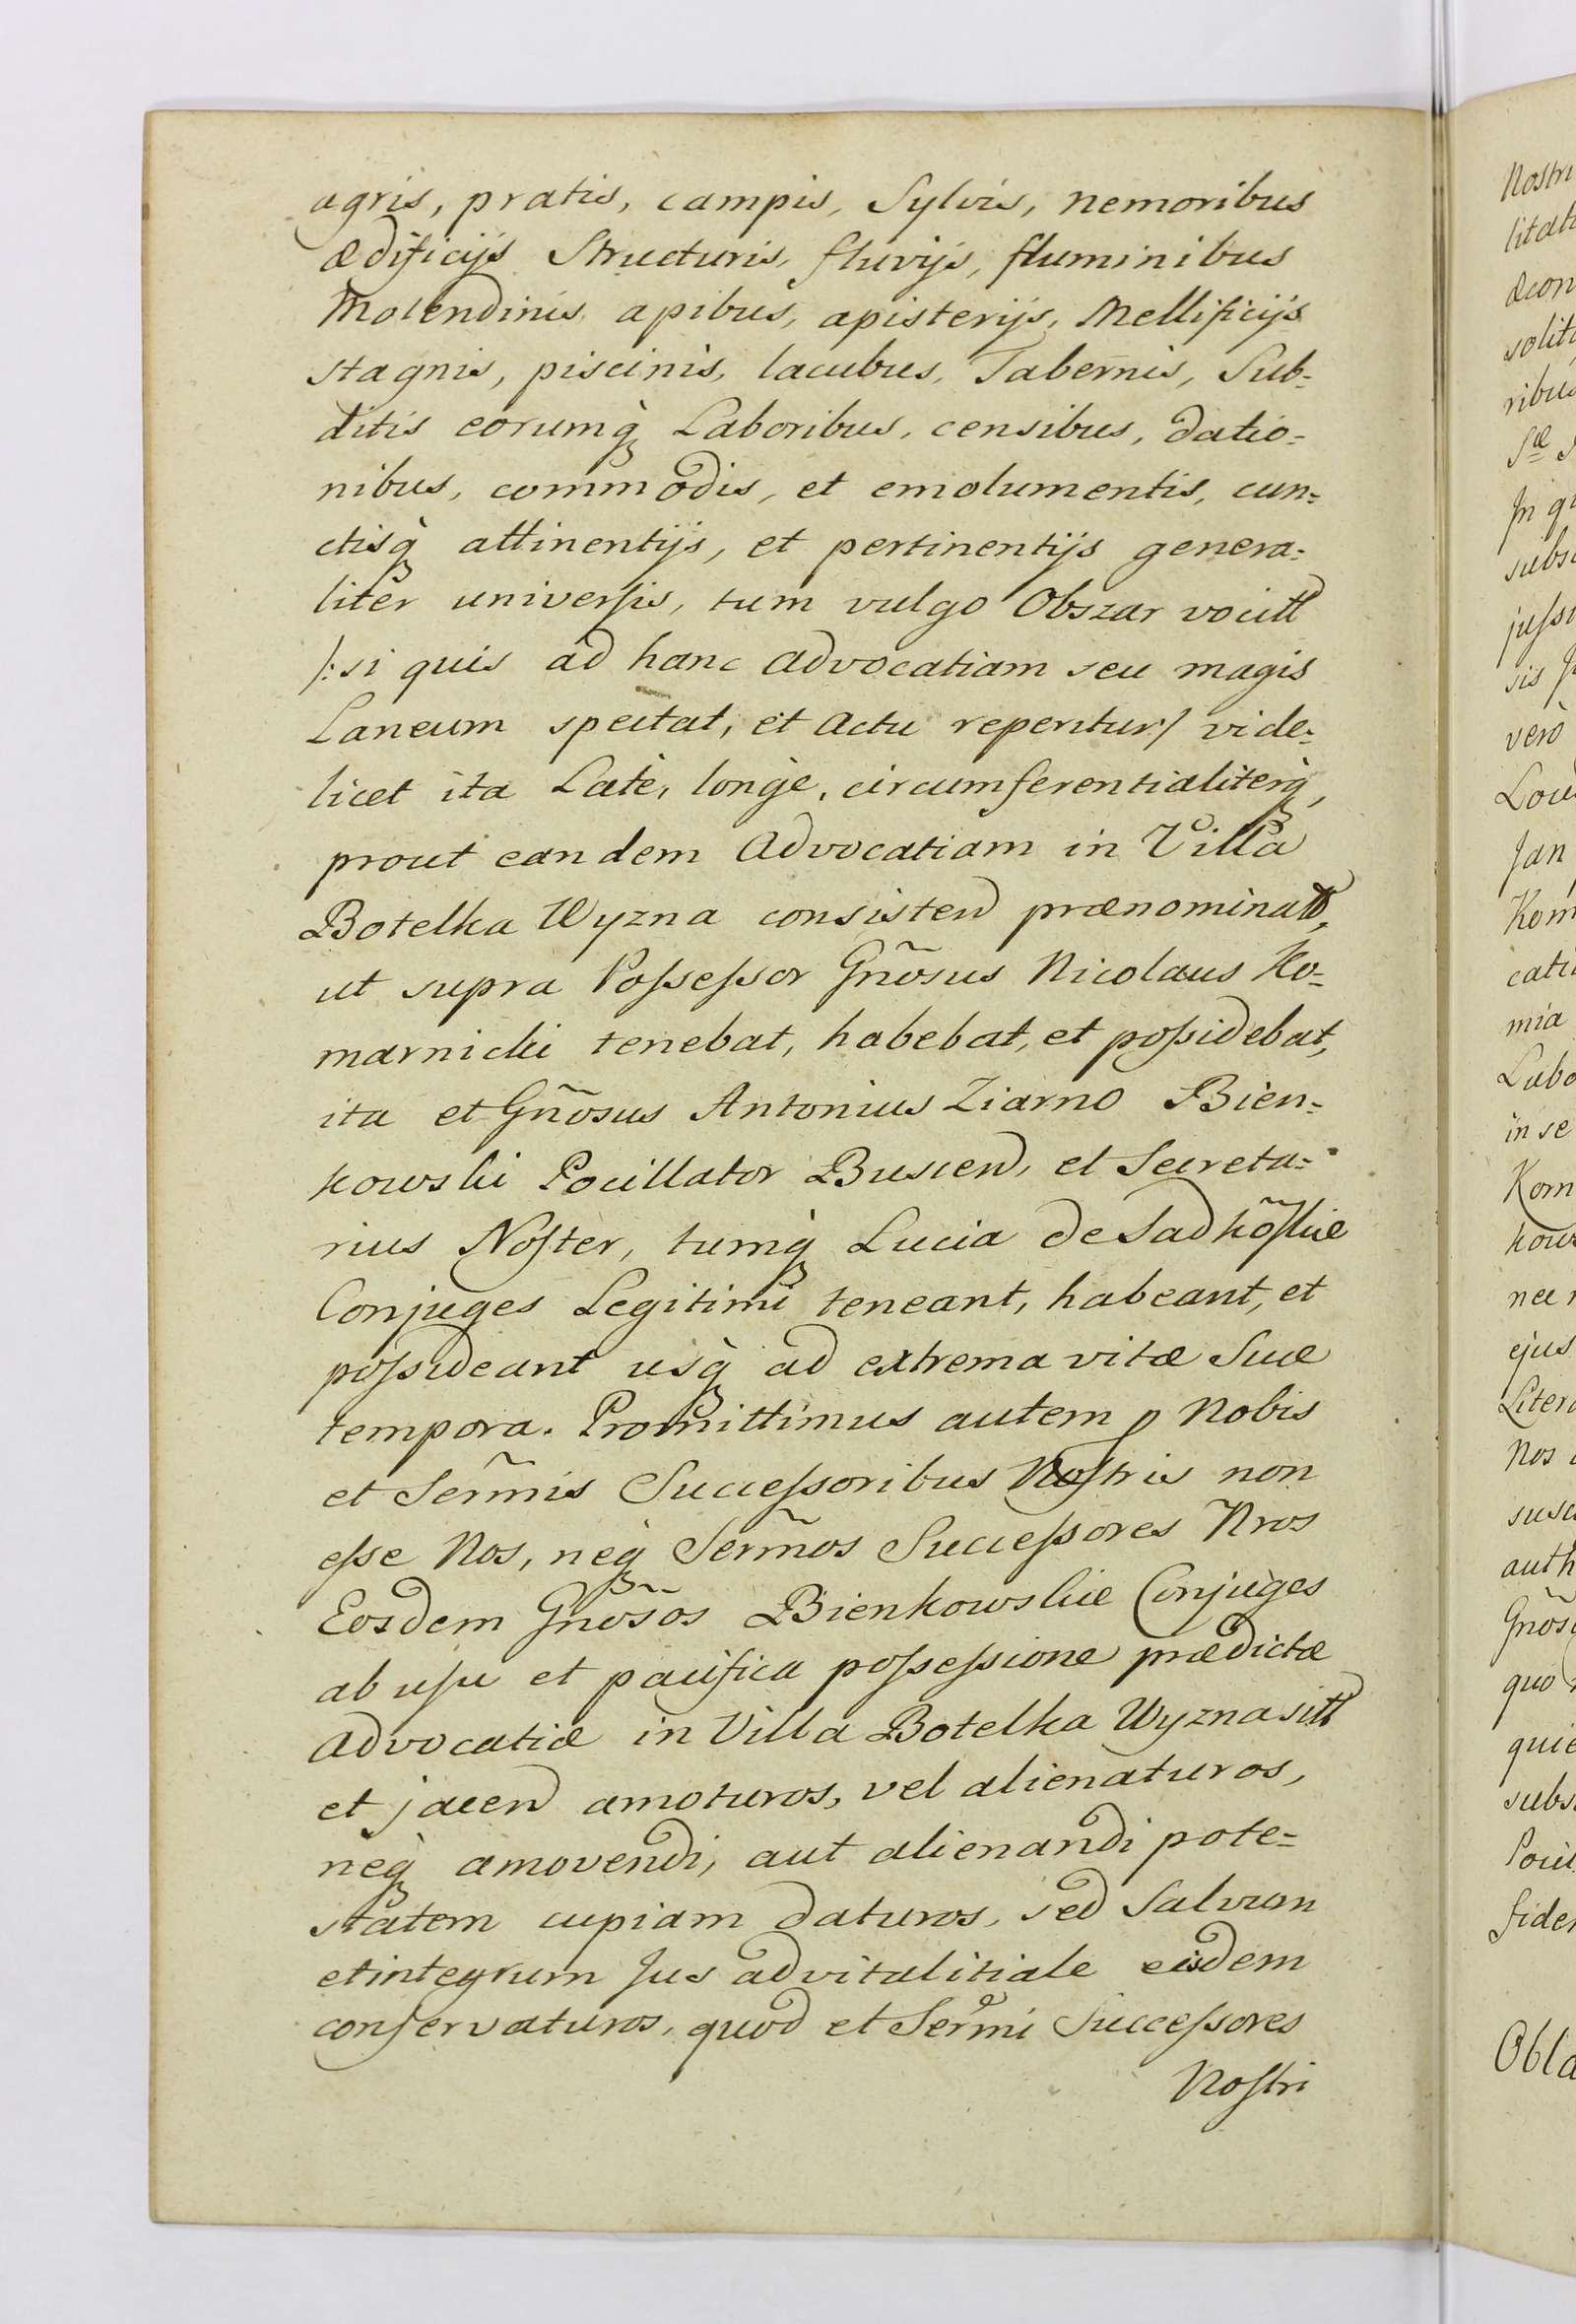 agris, pratis, campis, Sylvis, nemoribus
ædificijs Structuris, fluvijs, fluminibus
Molendinis, apibus, apisterijs, Mellificijs
stagnis, piscinis, lacubus, Tabernis, Sub=
ditis eorumq̀ Laboribus, censibus, datio=
nibus, commodis, et emolumentis, cun=
ctisq̀ attinentijs, et pertinentijs genera=
liter universis, tum vulgo Obszar vocitt
/: si quis ad hanc advocatiam seu magis
Laneum spectat, et actu reperitur :/ vide=
licet ita Latè, longè, circumferentialiterq̀,
prout eandem Advocatiam in Villa
Botelka Wyzna consisten prænominatt,
ut supra Possessor Gñosus Nicolaus Ko=
marnicki tenebat, habebat, et possidebat,
ita et Gñosus Antonius Ziarno Bien=
kowski Pocillator Buscen, et Secreta=
rius Noster, tumq̀ Lucia de Sadkõskie
Conjuges Legitimi teneant, habeant, et
possideant usq̀ ad extrema vitæ Suæ
tempora. Promittimus autem p Nobis
et Serm̃is Successoribus Nostris non
esse Nos, neq̀ Serm̃os Successores Nros
Eosdem Gñosos Bienkowskie Conjuges
ab usu et pacifica possessione prædictæ
advocatiæ in Villa Botelka Wyzna sitt
et jacen amoturos, vel alienaturos,
neq̀ amovendi, aut alienandi pote=
statem cupiam daturos, sed Salvum
et integrum Jus advitalitiale eisdem
conservaturos, quod et Sermi Successores
Nostri
Nostri
ribus
verò
Jan
mia
in se
ejus
Nos
quo